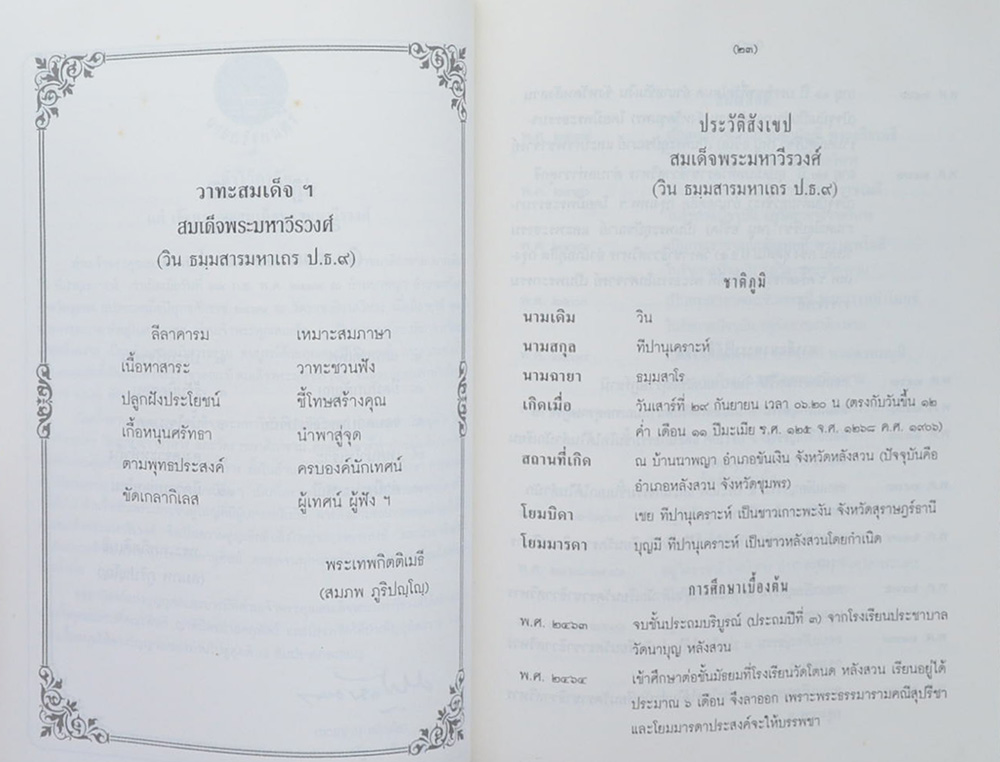 วาทะสมเด็จ ฯ
สมเด็จพระมหาวีรวงศ์
(วิน ธมฺมสารมหาเถร ป.ธ.๙)
ลีลาคารม เหมาะสมภาษา
เนื้อหาสาระ วาทะชวนฟัง
ปลูกฝังประโยชน์ ชี้โทษสร้างคุณ
เกื้อหนุนศรัทธา นำพาสู่จุด
ตามพุทธประสงค์ ครบองค์นักเทศน์
ขัดเกลากิเลส ผู้เทศน์ ผู้ฟัง ฯ
พระเทพกิตติเมธี
(สมภพ ภูริปญฺโญ)
(๒๓)
ประวัติสังเขป
สมเด็จพระมหาวีรวงศ์
(วิน ธมฺมสารมหาเถร ป.ธ.๙)
ชาติภูมิ
นามเดิม วิน
นามสกุล ทีปานุเคราะห์
นามฉายา ธมฺมสาโร
เกิดเมื่อ วันเสาร์ที่ ๒๙ กันยายน เวลา ๐๖.๒๐ น (ตรงกับวันขึ้น ๑๒
ค่ำ เดือน ๑๑ ปีมะเมีย ร.ศ. ๑๒๕ จ.ศ. ๑๒๖๘ ค.ศ. ๑๙๐๖)
สถานที่เกิด ณ บ้านนาพญา อำเภอขันเงิน จังหวัดหลังสวน (ปัจจุบันคือ
อำเภอหลังสวน จังหวัดชุมพร)
โยมบิดา เชย ทีปานุเคราะห์ เป็นชาวเกาะพะงัน จังหวัดสุราษฎร์ธานี
โยมมารดา บุญมี ทีปานุเคราะห์ เป็นชาวหลังสวนโดยกำเนิด
การศึกษาเบื้องต้น
พ.ศ. ๒๔๖๓ จบชั้นประถมบริบูรณ์ (ประถมปีที่ ๓) จากโรงเรียนประชาบาล
วัดนาบุญ หลังสวน
พ.ศ. ๒๔๖๔ เข้าศึกษาต่อชั้นมัธยมที่โรงเรียนวัดโตนด หลังสวน เรียนอยู่ได้
ประมาณ ๖ เดือน จึงลาออก เพราะพระธรรมารามคณีสุปรีชา
และโยมมารดาประสงค์จะให้บรรพชา